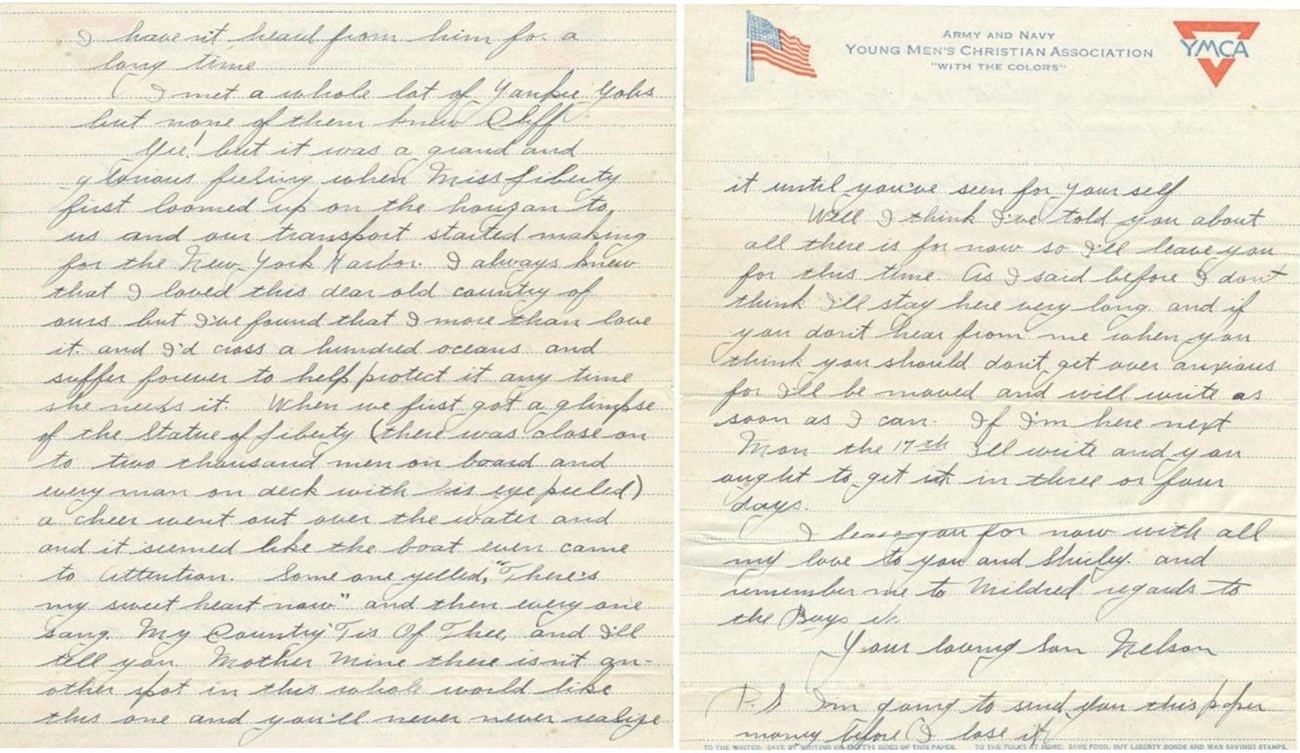 I haven't heard from him for a
long time
( I met a whole lot of Yankee Gobs
but none of them knew Cliff
Gee! but it was a grand and
glorious feeling when Miss Liberty
first loomed up on the horizan to
us and our transport started making
for the New York Harbor. I always knew
that I loved this dear old country of
ours but I've found that I more than love
it. and I'd cross a hundred oceans and
suffer forever to help protect it any time
she needs it. When we first got a glimpse
of the Statue of Liberty (there was close on
to two thousand men on board and
every man on deck with his eye peeled)
a cheer went out over the water and
and it seemed like the boat even came
to attention. Some one yelled, "There's
my sweet heart now" and then every one
sang. My Country Tis Of Thee, and I'll
tell you Mother Mine there isn't an-
other spot in this whole world like
this one and you'll never never realize
ARMY AND NAVY
YOUNG MEN'S CHRISTIAN ASSOCIATION
"WITH THE COLORS"
YMCA
it until you've seen for your self
Well I think I've told you about
all there is for now so I'll leave you
for this time. As I said before I don't
think I'll stay here very long and if
you don't hear from me when you
think you should don't get over anxious
for I'll be moved and will write as
soon as I can. If I'm here next
Mon the 17th I'll write and you
ought to get it in three or four
days.
I leave you for now with all
my love to you and Shirley. and
remember me to Mildred regards to
the Boys
Your loving Son Nelson
P.S I'm going to send you this paper
money before I lose it
TO THE WRITER: SAVE BY WRITING ON BOTH SIDES OF THIS PAPER. TO THE FOLKS AT HOME: SAVE FOOD, BUY LIBERTY BONDS AND WAR SAVINGS STAMPS.